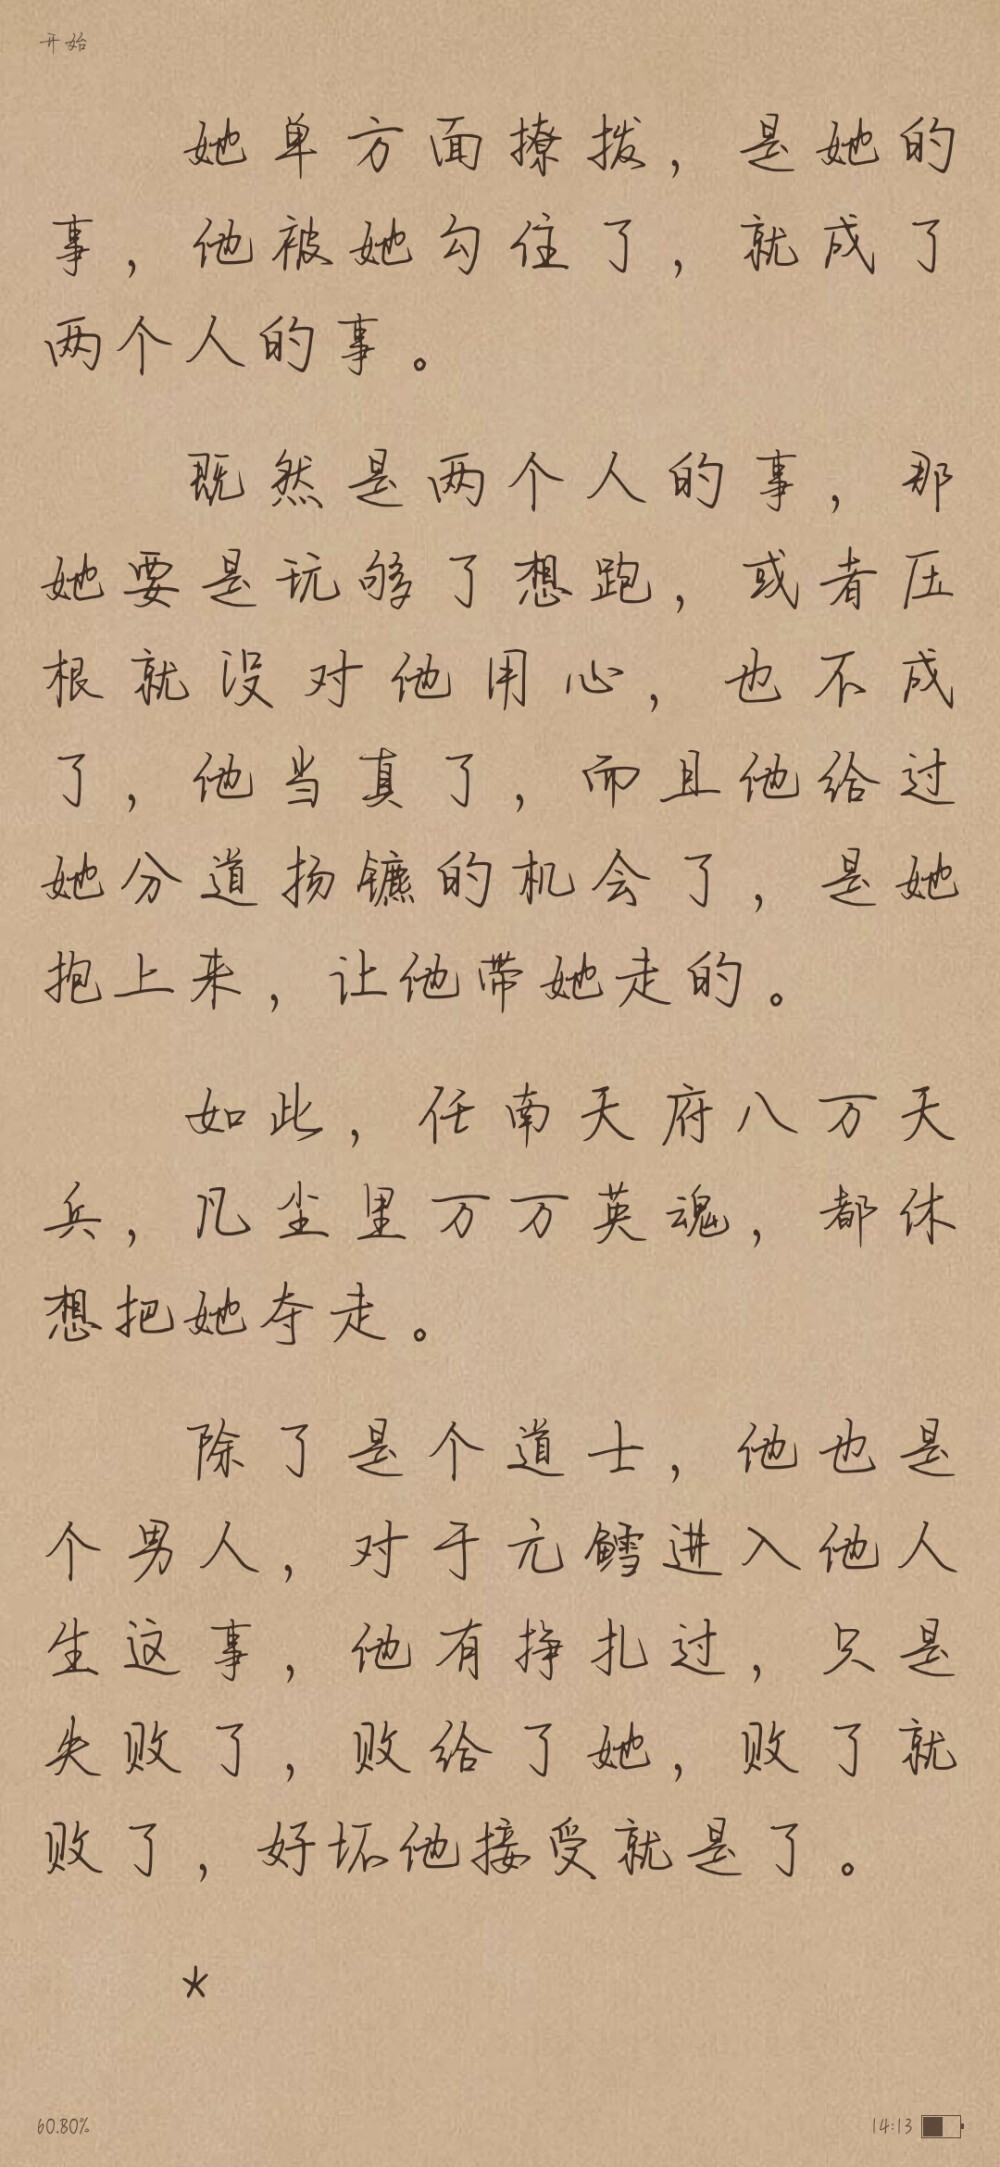 开始
她单方面撩拨，是她的
事，他被她勾住了，就成了
两个人的事。
既然是两个人的事，那
她要是玩够了想跑，或者压
根就没对他用心，也不成
了，他当真了，而且他给过
她分道扬镳的机会了，是她
抱上来，让他带她走的。
如此，任南天府八万天
兵，凡尘里万万英魂，都休
想把她夺走。
除了是个道士，他也是
个男人，对于元鳕进入他人
生这事，他有挣扎过，只是
失败了，败给了她，败了就
败了，好坏他接受就是了。
*
60.80%
14:13